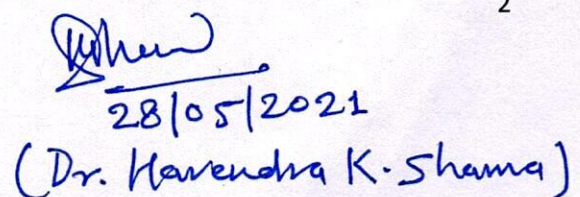 2
28/05/2021
(Dr. Harendra K. Sharma)